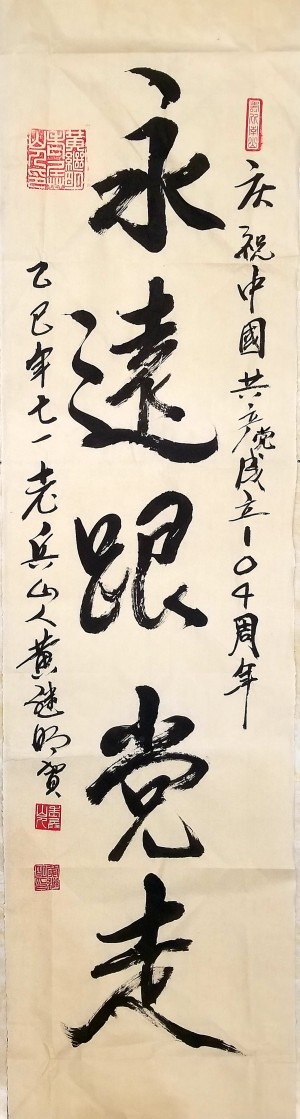 庆祝中國共产党成立104周年
永遠跟党走
乙巳年七一老兵山人黄继明贺